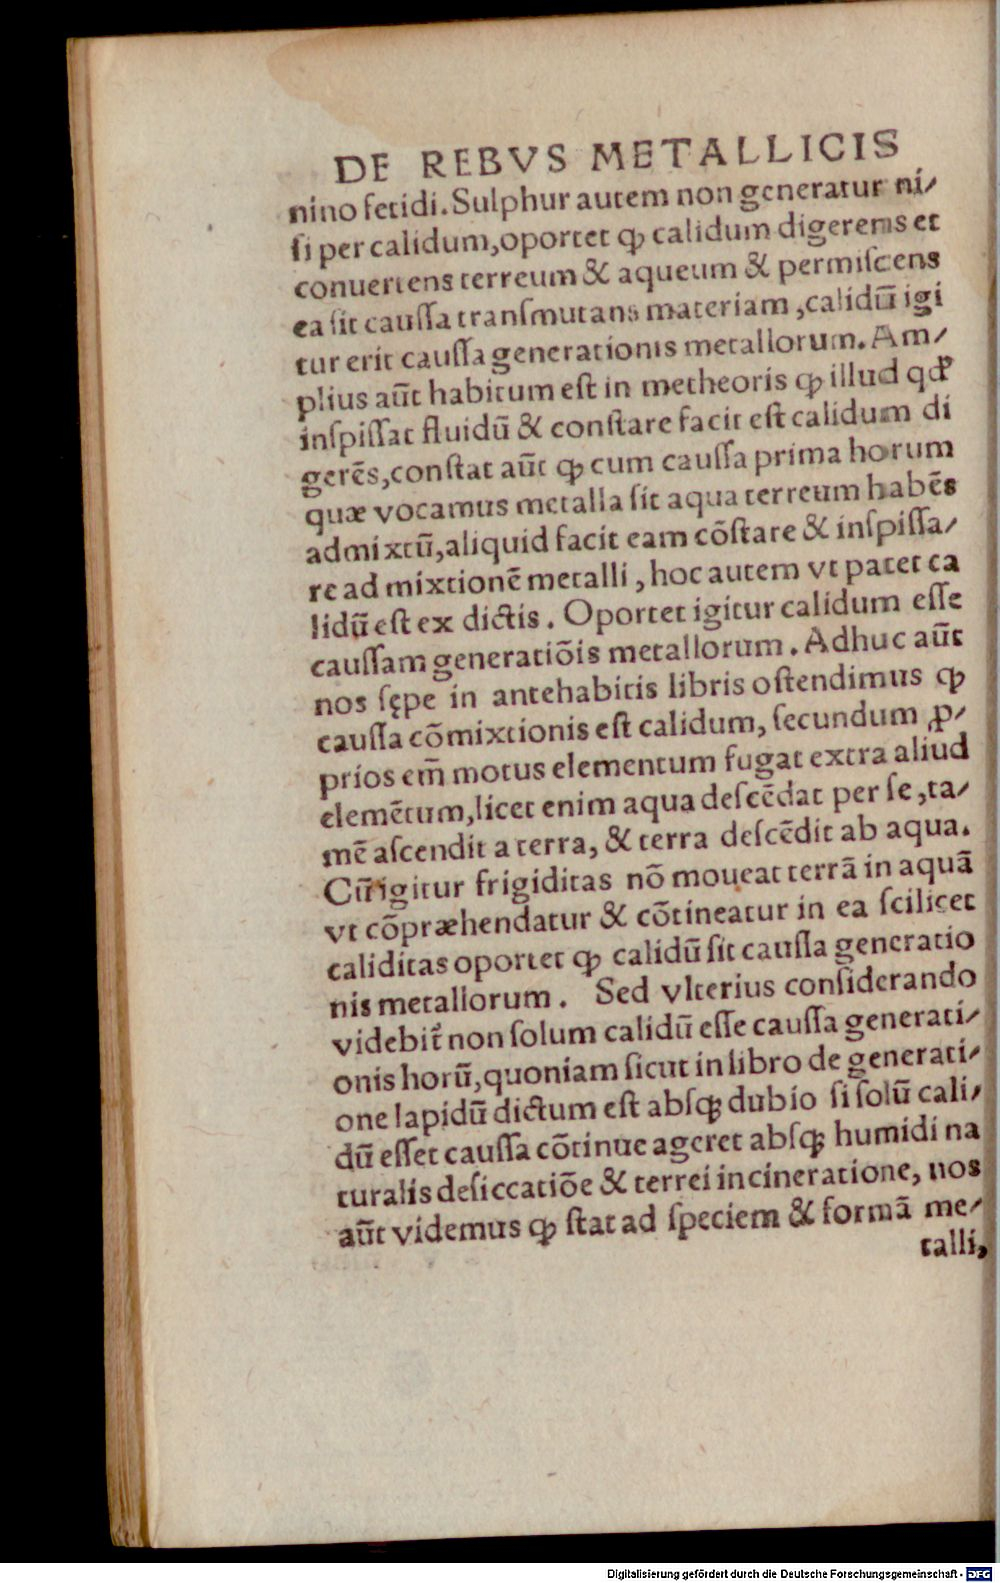 DE REBVS METALLICIS
nino fetidi. Sulphur autem non generatur ni/
ſi per calidum, oportet ꝙ calidum digerens et
conuertens terreum & aqueum & permiſcens
ea ſit cauſſa tranſmutans materiam, calidū igi
tur erit cauſſa generationis metallorum. Am/
plius aūt habitum eſt in metheoris ꝙ illud qđ
inſpiſſat fluidū & conſtare facit eſt calidum di
gerēs, conſtat aūt ꝙ cum cauſſa prima horum
quæ vocamus metalla ſit aqua terreum habēs
admixtū, aliquid facit eam cōſtare & inſpiſſa/
re ad mixtionē metalli, hoc autem vt patet ca
lidū eſt ex dictis. Oportet igitur calidum eſſe
cauſſam generatiōis metallorum. Adhuc aūt
nos ſępe in antehabitis libris oſtendimus ꝙ
cauſſa cōmixtionis eſt calidum, ſecundum ꝓ/
prios em̄ motus elementum fugat extra aliud
elemētum, licet enim aqua deſcēdat per ſe, ta/
mē aſcendit a terra, & terra deſcēdit ab aqua.
Cū igitur frigiditas nō moueat terrā in aquā
vt cōpræhendatur & cōtineatur in ea ſcilicet
caliditas oportet ꝙ calidū ſit cauſſa generatio
nis metallorum. Sed vlterius conſiderando
videbit̄ non ſolum calidū eſſe cauſſa generati/
onis horū, quoniam ſicut in libro de generati/
one lapidū dictum eſt abſqꝫ dubio ſi ſolū cali/
dū eſſet cauſſa cōtinue ageret abſqꝫ humidi na
turalis deſiccatiōe & terrei incineratione, nos
aūt videmus ꝙ ſtat ad ſpeciem & formā me/
talli,
Digitalisierung gefördert durch die Deutsche Forschungsgemeinschaft - DFG